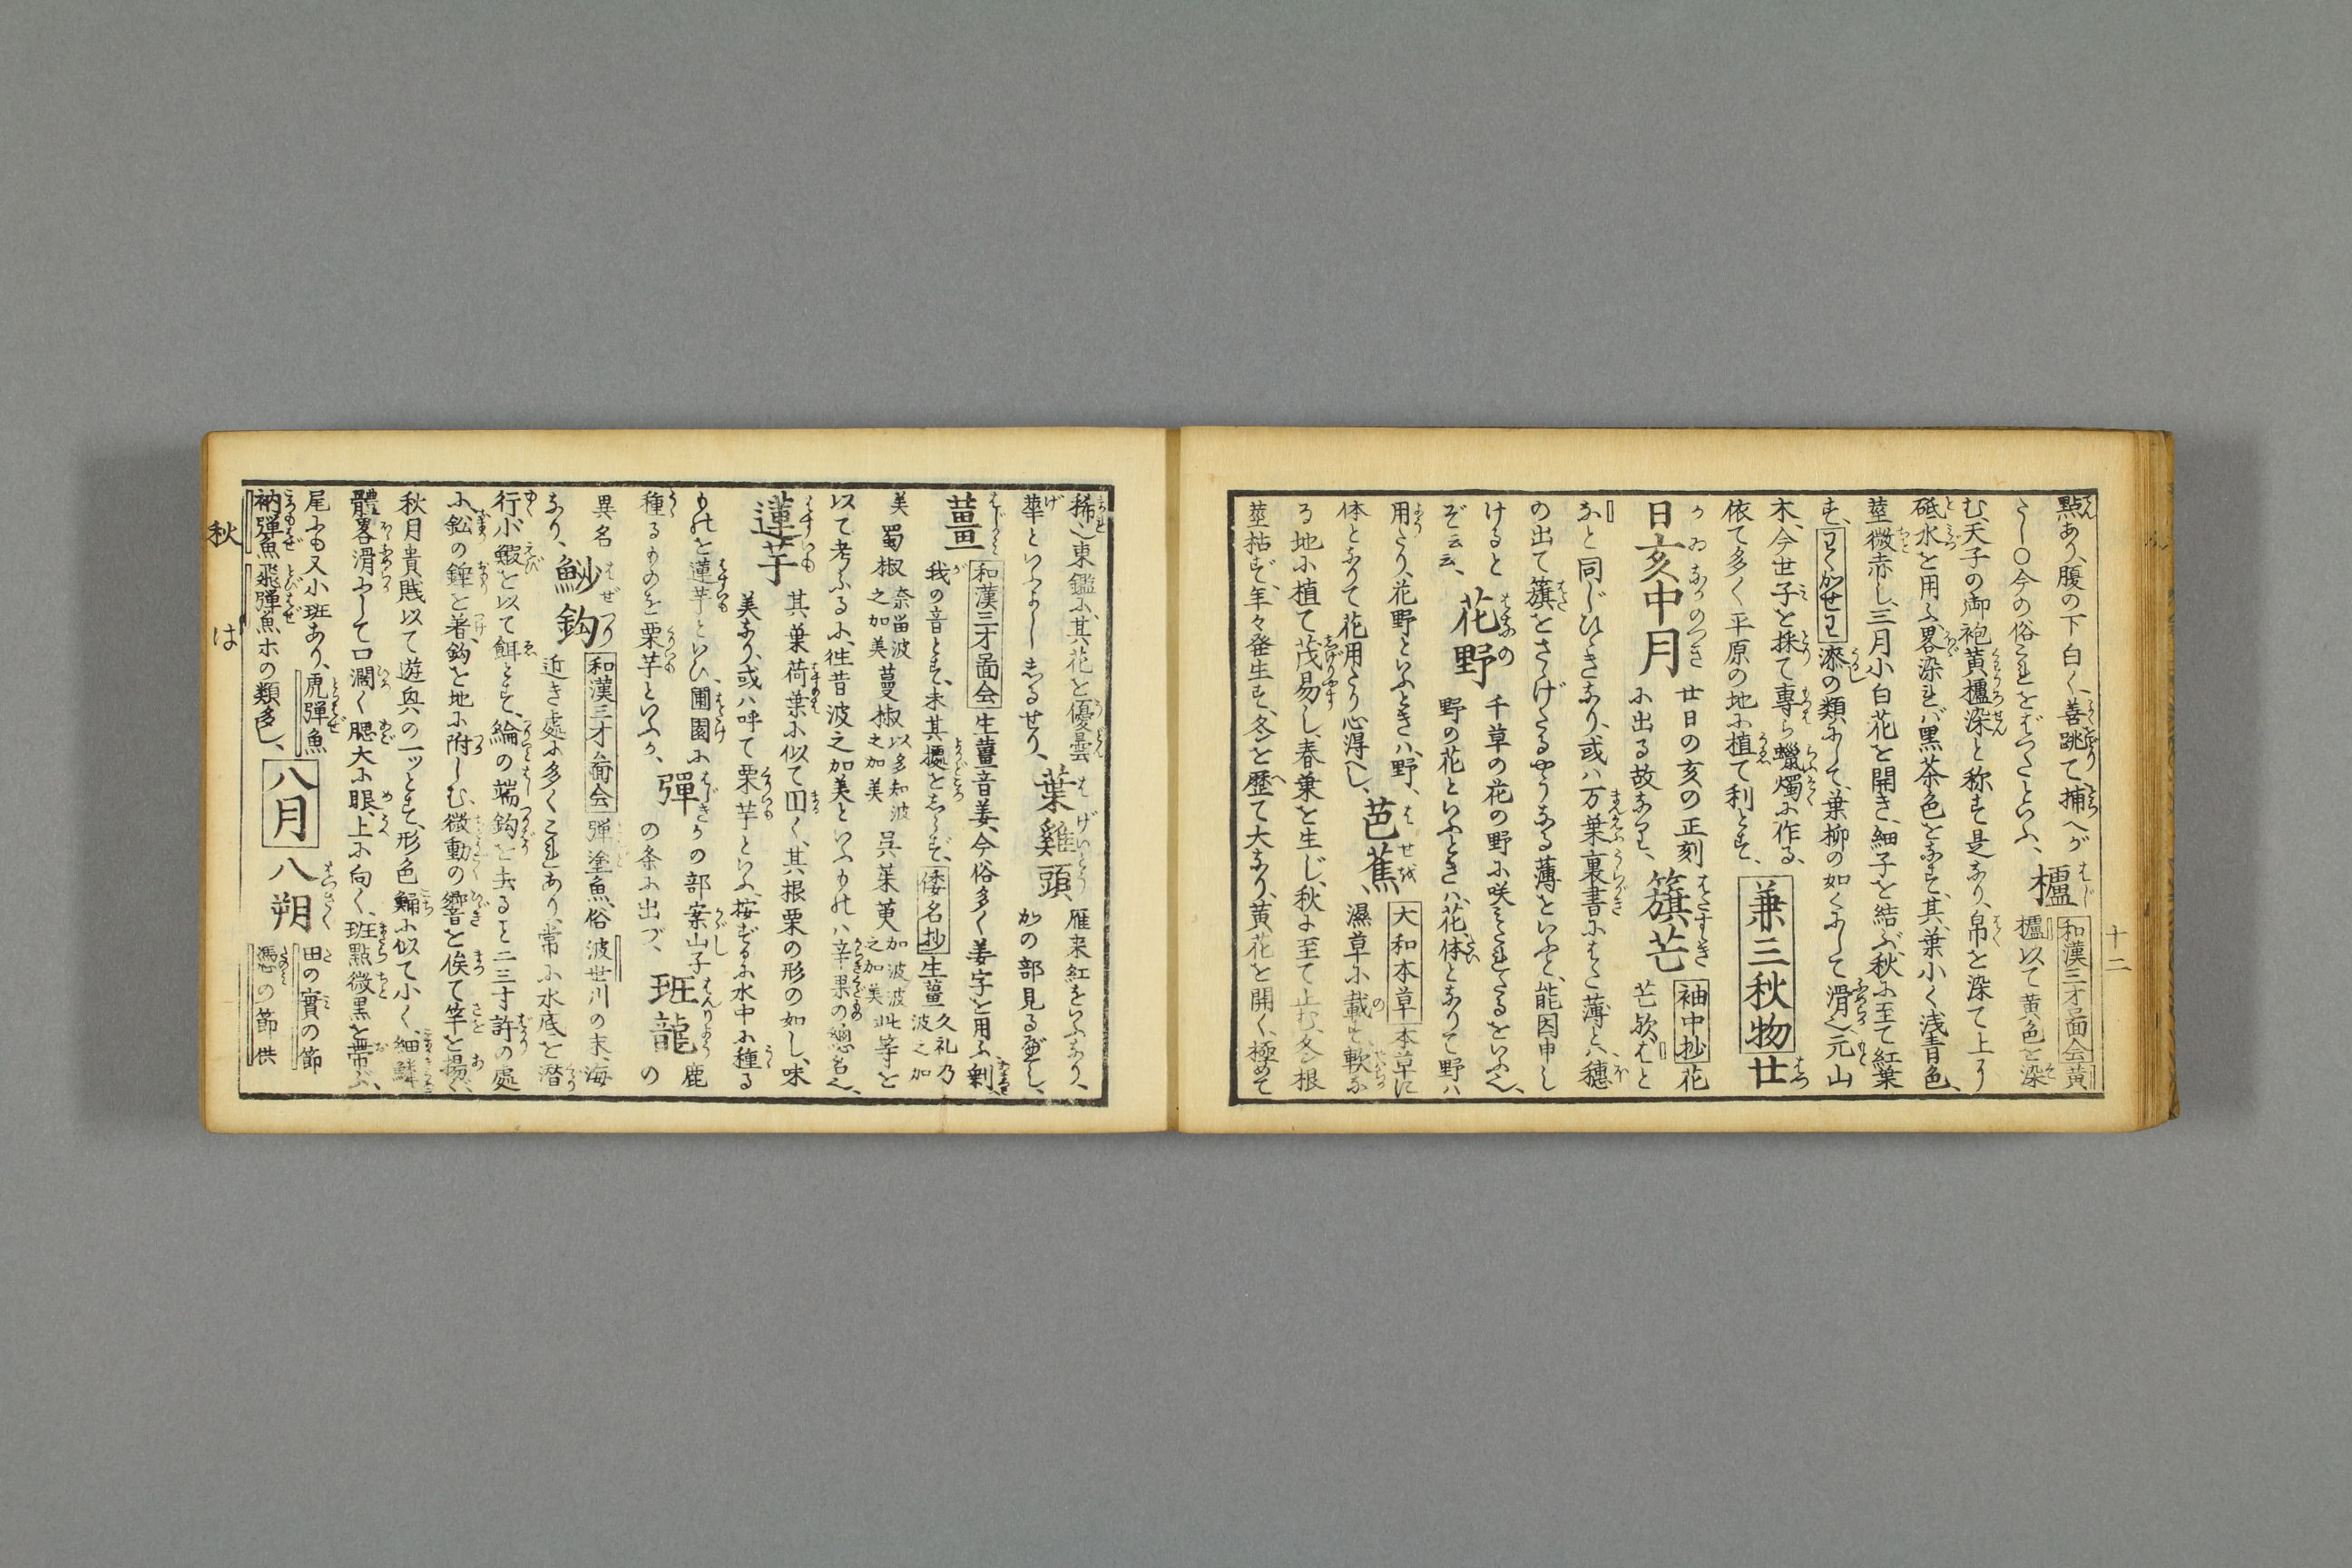 十二
點あり、腹の下白く、善跳て捕へが
たし〇今の俗これをばつたといふ、櫨 和漢三才圖会 黄櫨以て黄色を染
む、天子の御袍黄櫨染と称す是なり、帛を染て上り
砥水を用ふ、畧染れバ黒茶色をなす、其葉小く浅青色、
莖微赤し、三月小白花を開き、細子を結ぶ、秋に至て紅葉
す、漆の類にして、葉柳の如くにして滑也、元山
木、今世子を採て専ら蠟燭に作る、
依て多く平原の地に植て利とす、兼三秋物 廿
日亥中月 廿日の亥の正刻に出る故なり、籏芒 袖中抄 花芒歟はと
なと同じひゞきなり、或ハ万葉裏書にはた薄とハ穂
の出て籏をさゝげたるやうなる薄といふと、能因申し
けると
ぞ云云、花野 千草の花の野に咲みだれたるをいふ也、野の花といふときハ、花、体となりて野ハ
用なり、花野といふときハ、野、
体となりて花用なり心得へし、芭蕉、大和本草 本草に濕草に載す軟な
る地に植て茂易し、春葉を生じ、秋に至て止む、冬根
莖枯ず、年々発生す、冬を歴て大なり、黄花を開く、極めて
稀也東鑑に、其花を優曇
華といふよししるせり、葉雞頭 雁来紅をいふなり、かの部見るべし、
薑 和漢三才圖会 生薑音姜、今俗多く姜字を用ふ、剰
我の音とす、未其據をしらず、倭名抄 生薑 久礼乃波之加
美 蜀椒 奈留波之加美 蔓椒 以多知波之加美 呉茱萸 加波波之加美 此等を
以て考ふるに、往昔波之加美といふものハ、辛果の總名也、
蓮芋 其葉荷葉に似て円く、其根栗の形の如し、味美なり、或ハ呼て栗芋といふ、按ずるに水中に種る
ものを蓮芋といひ、圃園に
種るものを栗芋といふか、彈 きの部案山子の条に出づ、班龍 鹿の
異名
なり、鯊鈎 和漢三才圖会 彈塗魚、俗波世川の末、海近き處に多くこれあり、常に水底を潜
行小鰕を以て餌とす、綸の端鈎を去ること二三寸許の處
に鉛の錘を着、鈎を地に附しむ、微動の響を俟て竿を揚ぐ、
秋月貴賎以て遊興の一ッとす、形色鯒に似て小く、細鱗
體畧滑にして口濶く腮大に眼、上に向く、班點微黒を帯ぶ、
尾にも又小班あり、虎彈魚
衲彈魚飛彈魚ホの類多し、八月 八朔 田の實の節 憑の節供
秋 は